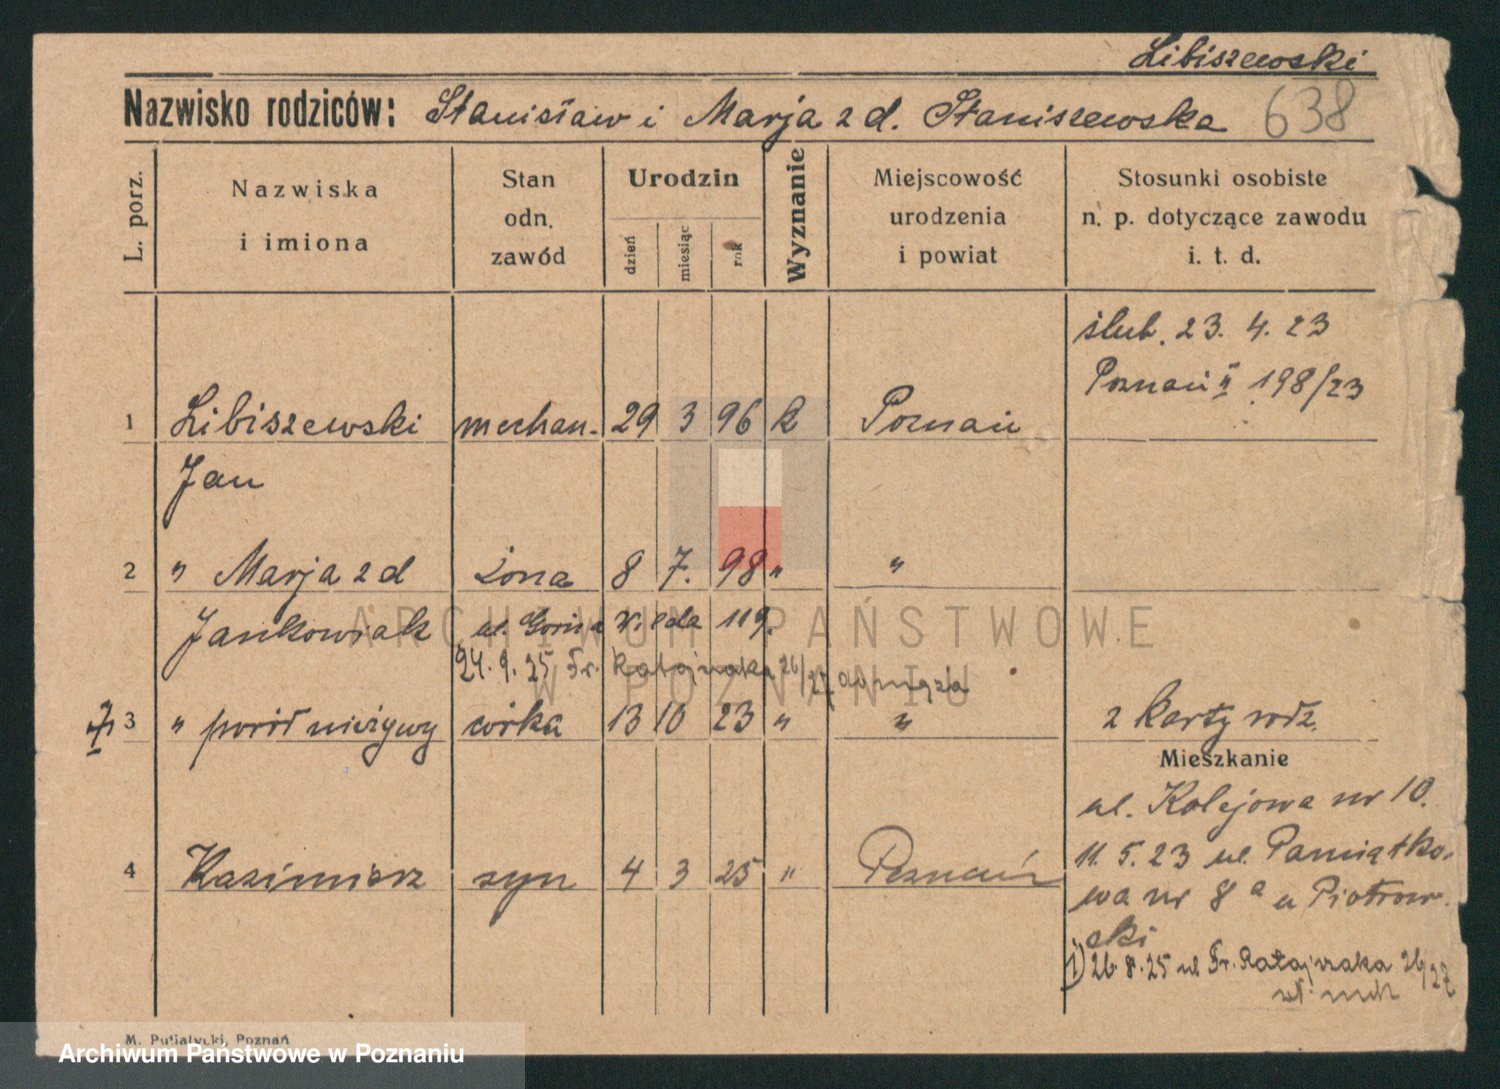 Libiszewski
Nazwisko rodziców: Stanisław i Marja z d. Staniszewska 638
L. porz.
Nazwiska
i imiona
Stan
odn.
zawód
Urodzin
dzień
miesiąc
rok
Wyznanie
Miejscowość
urodzenia
i powiat
Stosunki osobiste
n. p. dotyczące zawodu
i. t. d.
ślub. 23. 4. 23
Poznań II 198/23
1 Libiszewski mechan. 29 3 96 k Poznań
Jan
2 " Marja z d żona 8 7. 98 " "
Jankowiak ul. Górna Wilda 119.
24. 9. 25 Fr. Ratajczaka 26/27
3 " poród nieżywy córka 13 10 23 " " 2 karty rodz.
Mieszkanie
ul. Kolejowa nr 10.
11. 5. 23 ul. Pamiątko-
wa nr 8a u Piotrow-
ski
4 Kazimierz syn 4 3 25 " Poznań
1) 26. 8. 25 ul Fr. Ratajczaka 26/27
M. Putiatycki, Poznań
ARCHIWUM PAŃSTWOWE
W POZNANIU
Archiwum Państwowe w Poznaniu